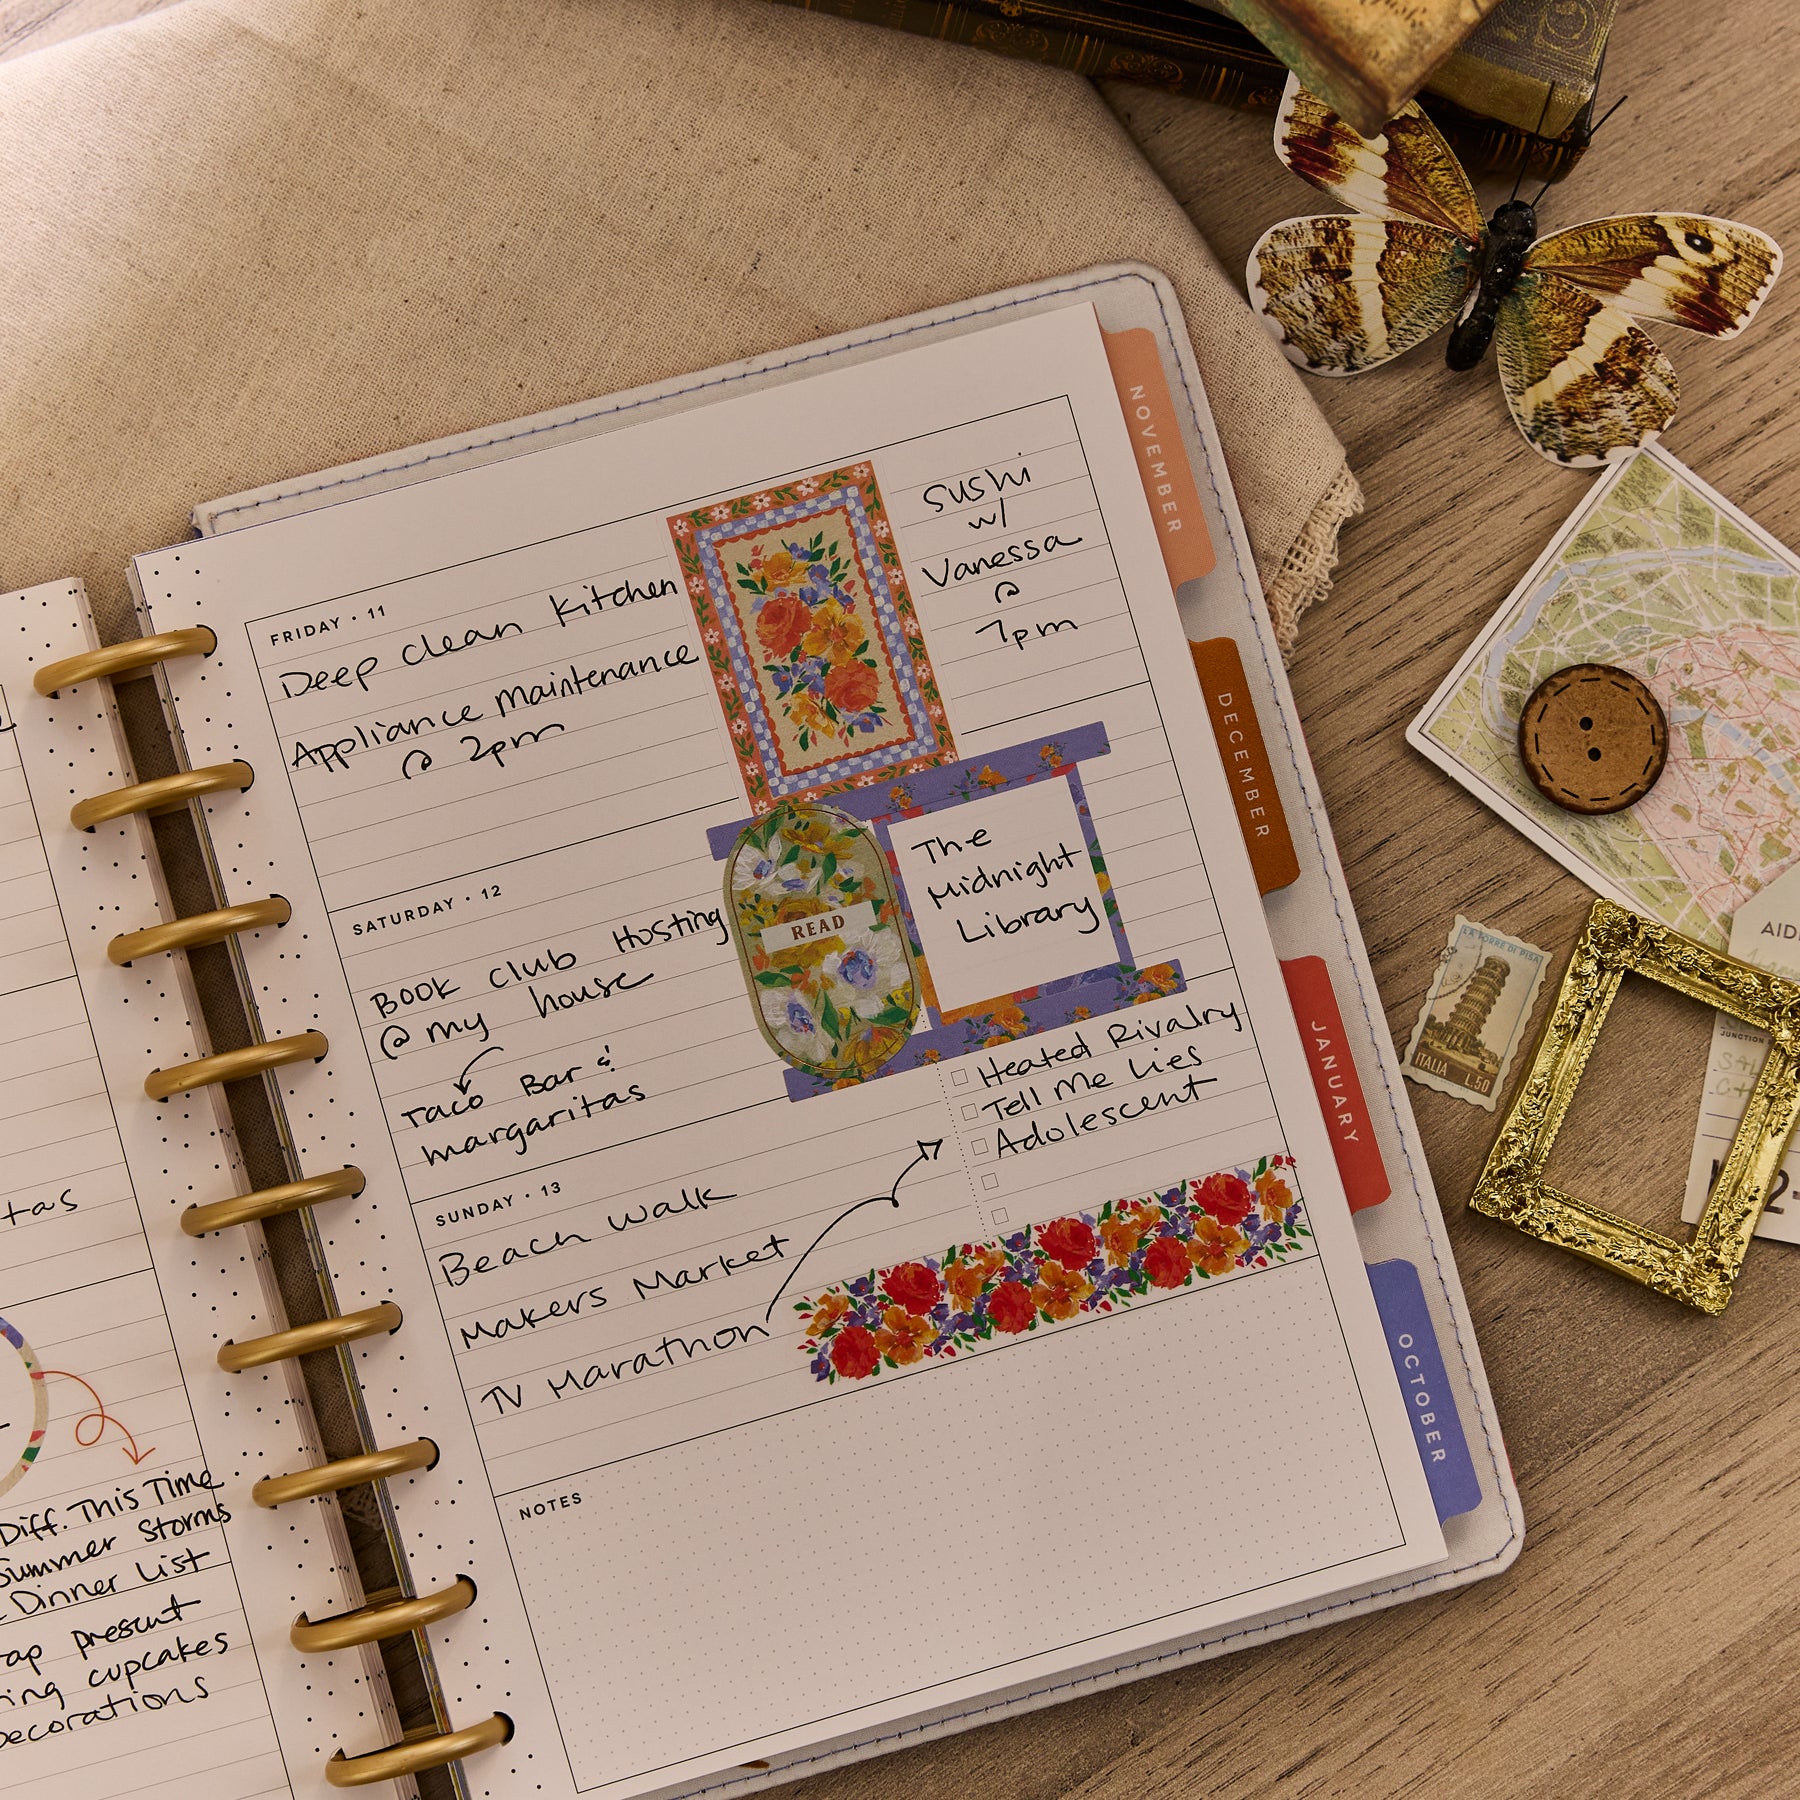 FRIDAY · 11
Deep clean kitchen
Appliance Maintenance
@ 2pm
Sushi
w/
Vanessa
@
7pm
SATURDAY · 12
Book Club Hosting
@ my house
Taco Bar &
margaritas
READ
The
Midnight
Library
SUNDAY · 13
Beach Walk
Makers Market
TV Marathon
Heated Rivalry
Tell Me Lies
Adolescent
NOTES
NOVEMBER
DECEMBER
JANUARY
OCTOBER
Diff. This Time
Summer Storms
Dinner List
present
cupcakes
Decorations
LA TORRE DI PISA
ITALIA L.50
JUNCTION